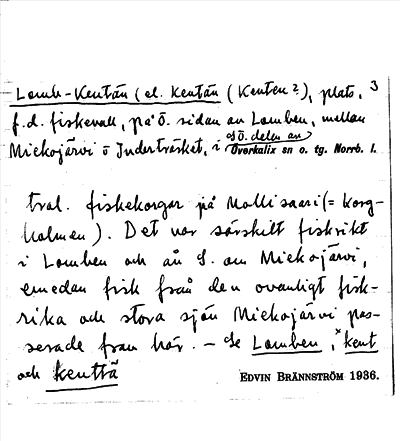 Lomb-Kentän (el. Kentän (Kenten?), plats, 3
f.d. fiskevall, på ö. sidan av Lomben, mellan
Miekojärvi o Inderträsket, i sö. delen av
Överkalix sn o. tg. Norrb. l.
tral. fiskekorgar på Mollisaari (= Korg-
holmen). Det var särskilt fiskrikt
i Lomben och ån S. om Miekojärvi,
emedan fisk från den ovanligt fisk-
rika och stora sjön Miekojärvi pas-
serade fram här. – Se Lomben, ×kent
och kenttä
EDVIN BRÄNNSTRÖM 1936.